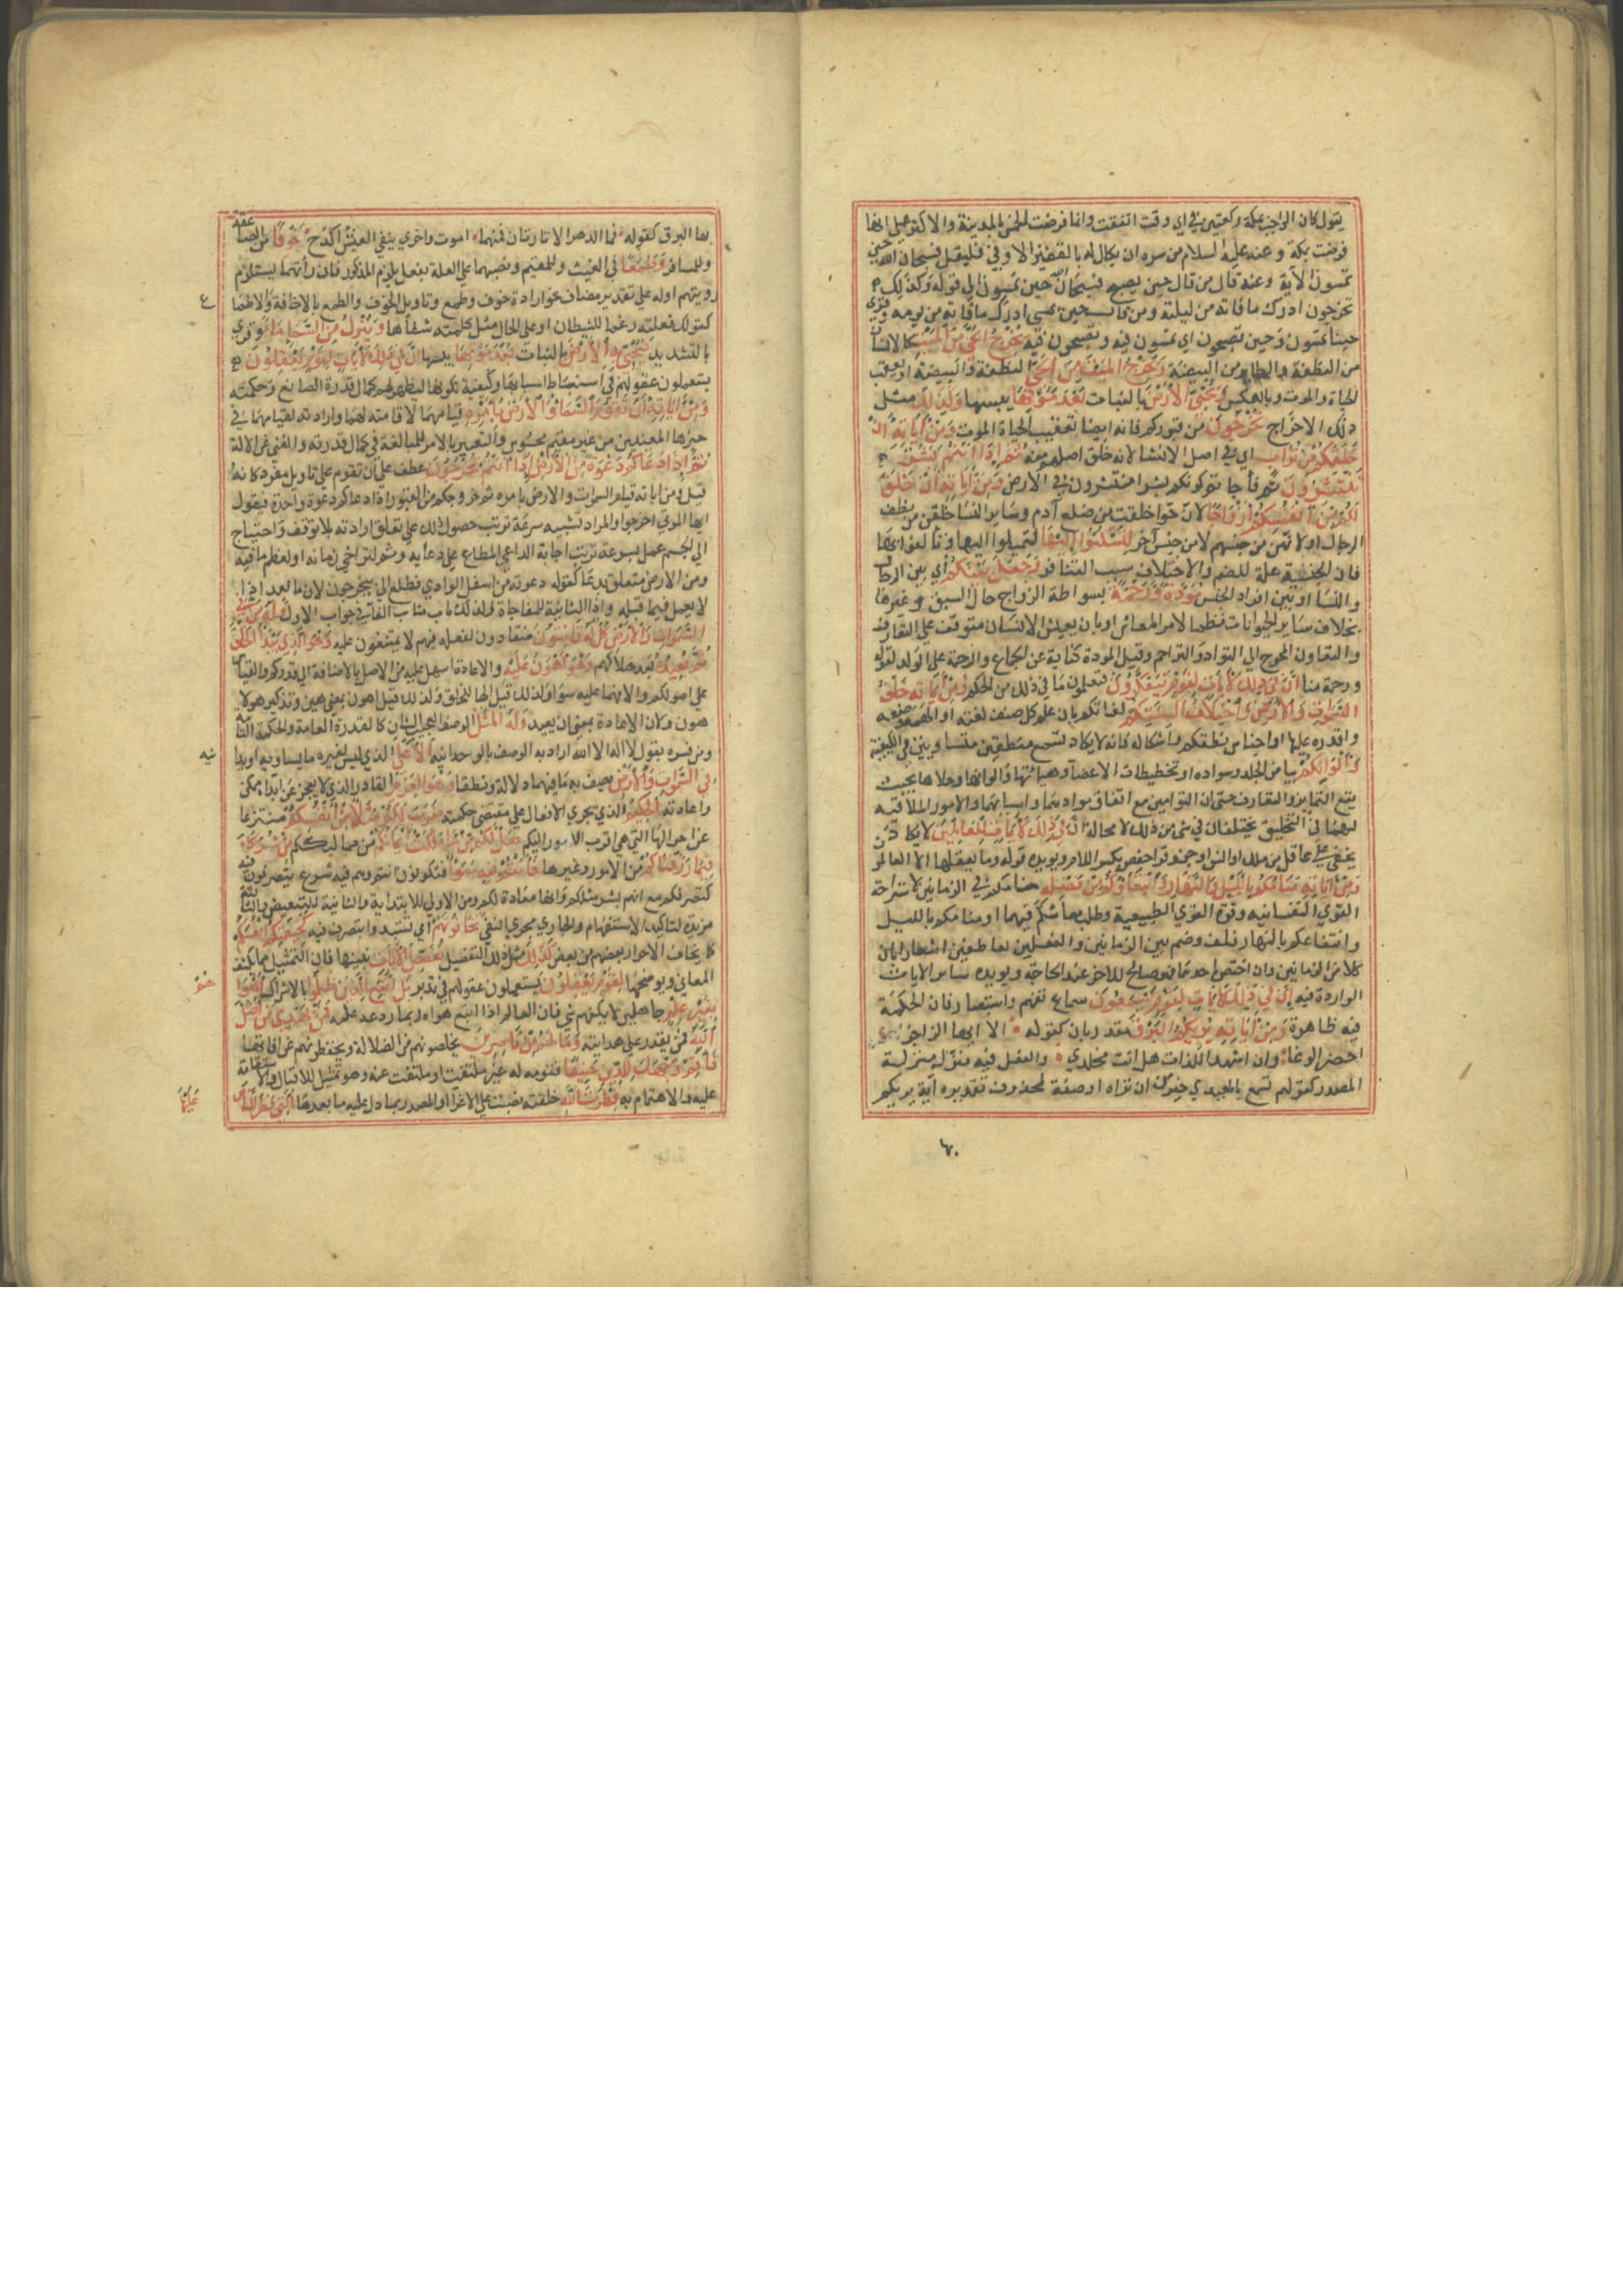 يقول كان الواجب بمكة ركعتين في اي وقت اتفقت وانما فرضت الخمس بالمدينة والاكثر على انها
فرضت بمكة وعنه عليه السلام من سره ان يكال له بالقفيز الاوفى فليقل فسبحان الله حين
تمسون الاية وعنه قال من قال حين يصبح فسبحان الله حين تمسون الى قوله وكذلك
تخرجون ادرك ما فاته من ليلته ومن قاله حين يمسي ادرك ما فاته من يومه وقري
حينا تمسون وحين تصبحون اي تمسون فيه وتصبحون فيه يخرج الحي من الميت كالانسان
من النطفة والطاير من البيضة ويخرج الميت من الحي النطفة والبيضة او يعقب
الحياة والموت وبالعكس ويحيي الارض بالنبات بعد موتها يبسها وكذلك مثل
ذلك الاخراج تخرجون من قبوركم فانه ايضا تعقيب الحياة الموت ومن اياته ان
خلقكم من تراب اي في اصل الانشا لانه خلق اصلهم منه ثم اذا انتم بشر
تنتشرون ثم فاجاتم وقت كونكم بشرا منتشرون في الارض ومن اياته ان خلق
لكم من انفسكم ازواجا لان حوا خلقت من ضلع آدم وساير النسا خلقن من نطف
الرجال او لانهن من جنسهم لا من جنس آخر لتسكنوا اليها لتميلوا اليها وتالفوا بها
فان الجنسية علة للضم والاختلاف سبب التنافر وجعل بينكم اي بين الرجال
والنسا او بين افراد الجنس مودة ورحمة بواسطة الزواج حال الشبق وغيرها
بخلاف ساير الحيوانات نظما لامر المعاش او بان يعيش الانسان متوقف على التعارف
والتعاون المحوج الى التواد والتراحم وقيل المودة كناية عن الجماع والرحمة على الولد لقوله
ورحمة منا ان في ذلك لايات لقوم يتفكرون فيعلمون ما في ذلك من الحكم ومن اياته خلق
السموات والارض واختلاف السنتكم لغاتكم بان علم كل صنف لغته او الهمه وضعها
واقدره عليها او اجناس نطقكم واشكاله فانه لا يكاد تسمع منطقين متساويين في الكيفية
والوانكم بياض الجلد وسواده او تخطيطات الاعضا وهياتها والوانها وحلاها بحيث
يقع التمايز والتعارف حتى ان التوامين مع اتفاق موادهما واسبابهما والامور الملاقية
لهما في التخليق يختلفان في شي من ذلك لا محالة ان في ذلك لايات للعالمين لا يكاد
يخفى على عاقل من ملك او انس او جن وقرا حفص بكسر اللام ويويده قوله وما يعقلها الا العالمون
ومن اياته منامكم بالليل والنهار وابتغاوكم من فضله منامكم في الزمانين لاستراحة
القوى النفسانية وقوة القوى الطبيعية وطلب معاشكم فيهما او منامكم بالليل
وابتغاءكم بالنهار فلف وضم بين الزمانين والفعلين بعاطفين اشعارا بان
كلا من الزمانين وان اختص باحدهما فهو صالح للاخر عند الحاجة ويويده ساير الايات
الواردة فيه ان في ذلك لايات لقوم يسمعون سماع تفهم واستبصار فان الحكمة
فيه ظاهرة ومن اياته يريكم البرق مقدر بان كقوله الا ايهذا الزاجري
احضر الوغا وان اشهد اللذات هل انت مخلدي والفعل فيه منزل منزلة
المصدر كقولهم تسمع بالمعيدي خير من ان تراه او صفة لمحذوف تقديره آية يريكم
بها البرق كقوله فما الدهر الا تارتان فمنهما اموت واخرى ابتغي العيش اكدح خوفا من الصاعقة
وللمسافر وطمعا في الغيث وللمقيم ونصبهما على العلة لفعل يلزم المذكور فان اراتهم تستلزم
رويتهم او له على تقدير مضاف نحو ارادة خوف وطمع وتاويل الخوف والطمع بالاخافة والاطماع
كقولك فعلته رغما للشيطان او على الحال مثل كلمته شفاها وينزل من السماء ماء وقري
بالتشديد فيحيي به الارض بالنبات بعد موتها يبسها ان في ذلك لايات لقوم يعقلون
يستعملون عقولهم في استنباط اسبابها وكيفية تكونها ليظهر لهم كمال قدرة الصانع وحكمته
ومن اياته ان تقوم السماء والارض بامره قيامهما لاقامته لهما وارادته لقيامهما في
حيزيهما المعينين من غير مقيم محسوس والتعبير بالامر للمبالغة في كمال قدرته والغنى عن الالة
ثم اذا دعاكم دعوة من الارض اذا انتم تخرجون عطف على ان تقوم على تاويل مفرد كانه
قيل ومن اياته قيام السموات والارض بامره ثم خروجكم من القبور اذا دعاكم دعوة واحدة فيقول
ايها الموتى اخرجوا والمراد تشبيه سرعة ترتب حصول ذلك على تعلق ارادته بلا توقف واحتياج
الى تجشم عمل بسرعة ترتب اجابة الداعي المطاع على دعايه وثم لتراخي زمانه او لعظم ما فيه
ومن الارض متعلق بدعا كقوله دعوته من اسفل الوادي فطلع الي لا بتخرجون لان ما بعد اذا
لا يعمل فيما قبله واذا الثانية للمفاجاة ولذلك ناب مناب الفا في جواب الاول وله من في
السموات والارض كل له قانتون منقادون لفعله فيهم لا يمتنعون عليه وهو الذي يبدا الخلق
ثم يعيده بعد هلاكهم وهو اهون عليه والاعادة اسهل عليه من الاصل بالاضافة الى قدركم والقياس
على اصولكم والا فهما عليه سوا ولذلك قيل الها للخلق وقيل اهون بمعنى هين وتذكير هو لاهون
هون وكان الاعادة بمعنى ان يعيد وله المثل الوصف العجيب الشان كالقدرة العامة والحكمة التامة
ومن فسره بقول لا اله الا الله اراد به الوصف بالوحدانية الاعلى الذي ليس لغيره ما يساويه او يدا
نيه
في السموات والارض يصفه به ما فيهما دلالة ونطقا وهو العزيز القادر الذي لا يعجز عن ابداء ممكن
واعادته الحكيم الذي تجري الافعال على مقتضى حكمته ضرب لكم مثلا من انفسكم منتزعا
من احوالها التي هي اقرب الامور اليكم هل لكم من ما ملكت ايمانكم من مماليككم من شركاء
فيما رزقناكم من الاموال وغيرها فانتم فيه سواء فتكونون انتم وهم فيه شرع يتصرفون فيه
كتصرفكم مع انهم بشر مثلكم وانها معارة لكم ومن الاولى للابتداية والثانية للتبعيض والثالثة
مزيدة لتاكيد الاستفهام الجاري مجرى النفي تخافونهم ان تستبدوا بتصرف فيه كخيفتكم انفسكم
كما يخاف الاحرار بعضهم من بعض كذلك مثل ذلك التفصيل نفصل الايات نبينها فان التمثيل مما يكشف
المعاني ويوضحها لقوم يعقلون يستعملون عقولهم في تدبر بل اتبع الذين ظلموا بالاشراك اهواءهم
بغير علم جاهلين لا يكفهم شي فان العالم اذا اتبع هواه ربما ردعه علمه فمن يهدي من اضل
الله فمن يقدر على هدايته وما لهم من ناصرين يخلصونهم من الضلالة ويحفظونهم عن افاتها
فاقم وجهك للدين حنيفا فقومه له غير ملتفت او ملتفت عنه وهو تمثيل للاقبال والاستقامة
عليه والاهتمام به فطرت الله خلقته نصب على الاغرا او المصدر بما دل عليه ما بعدها التي فطر الناس
عليها